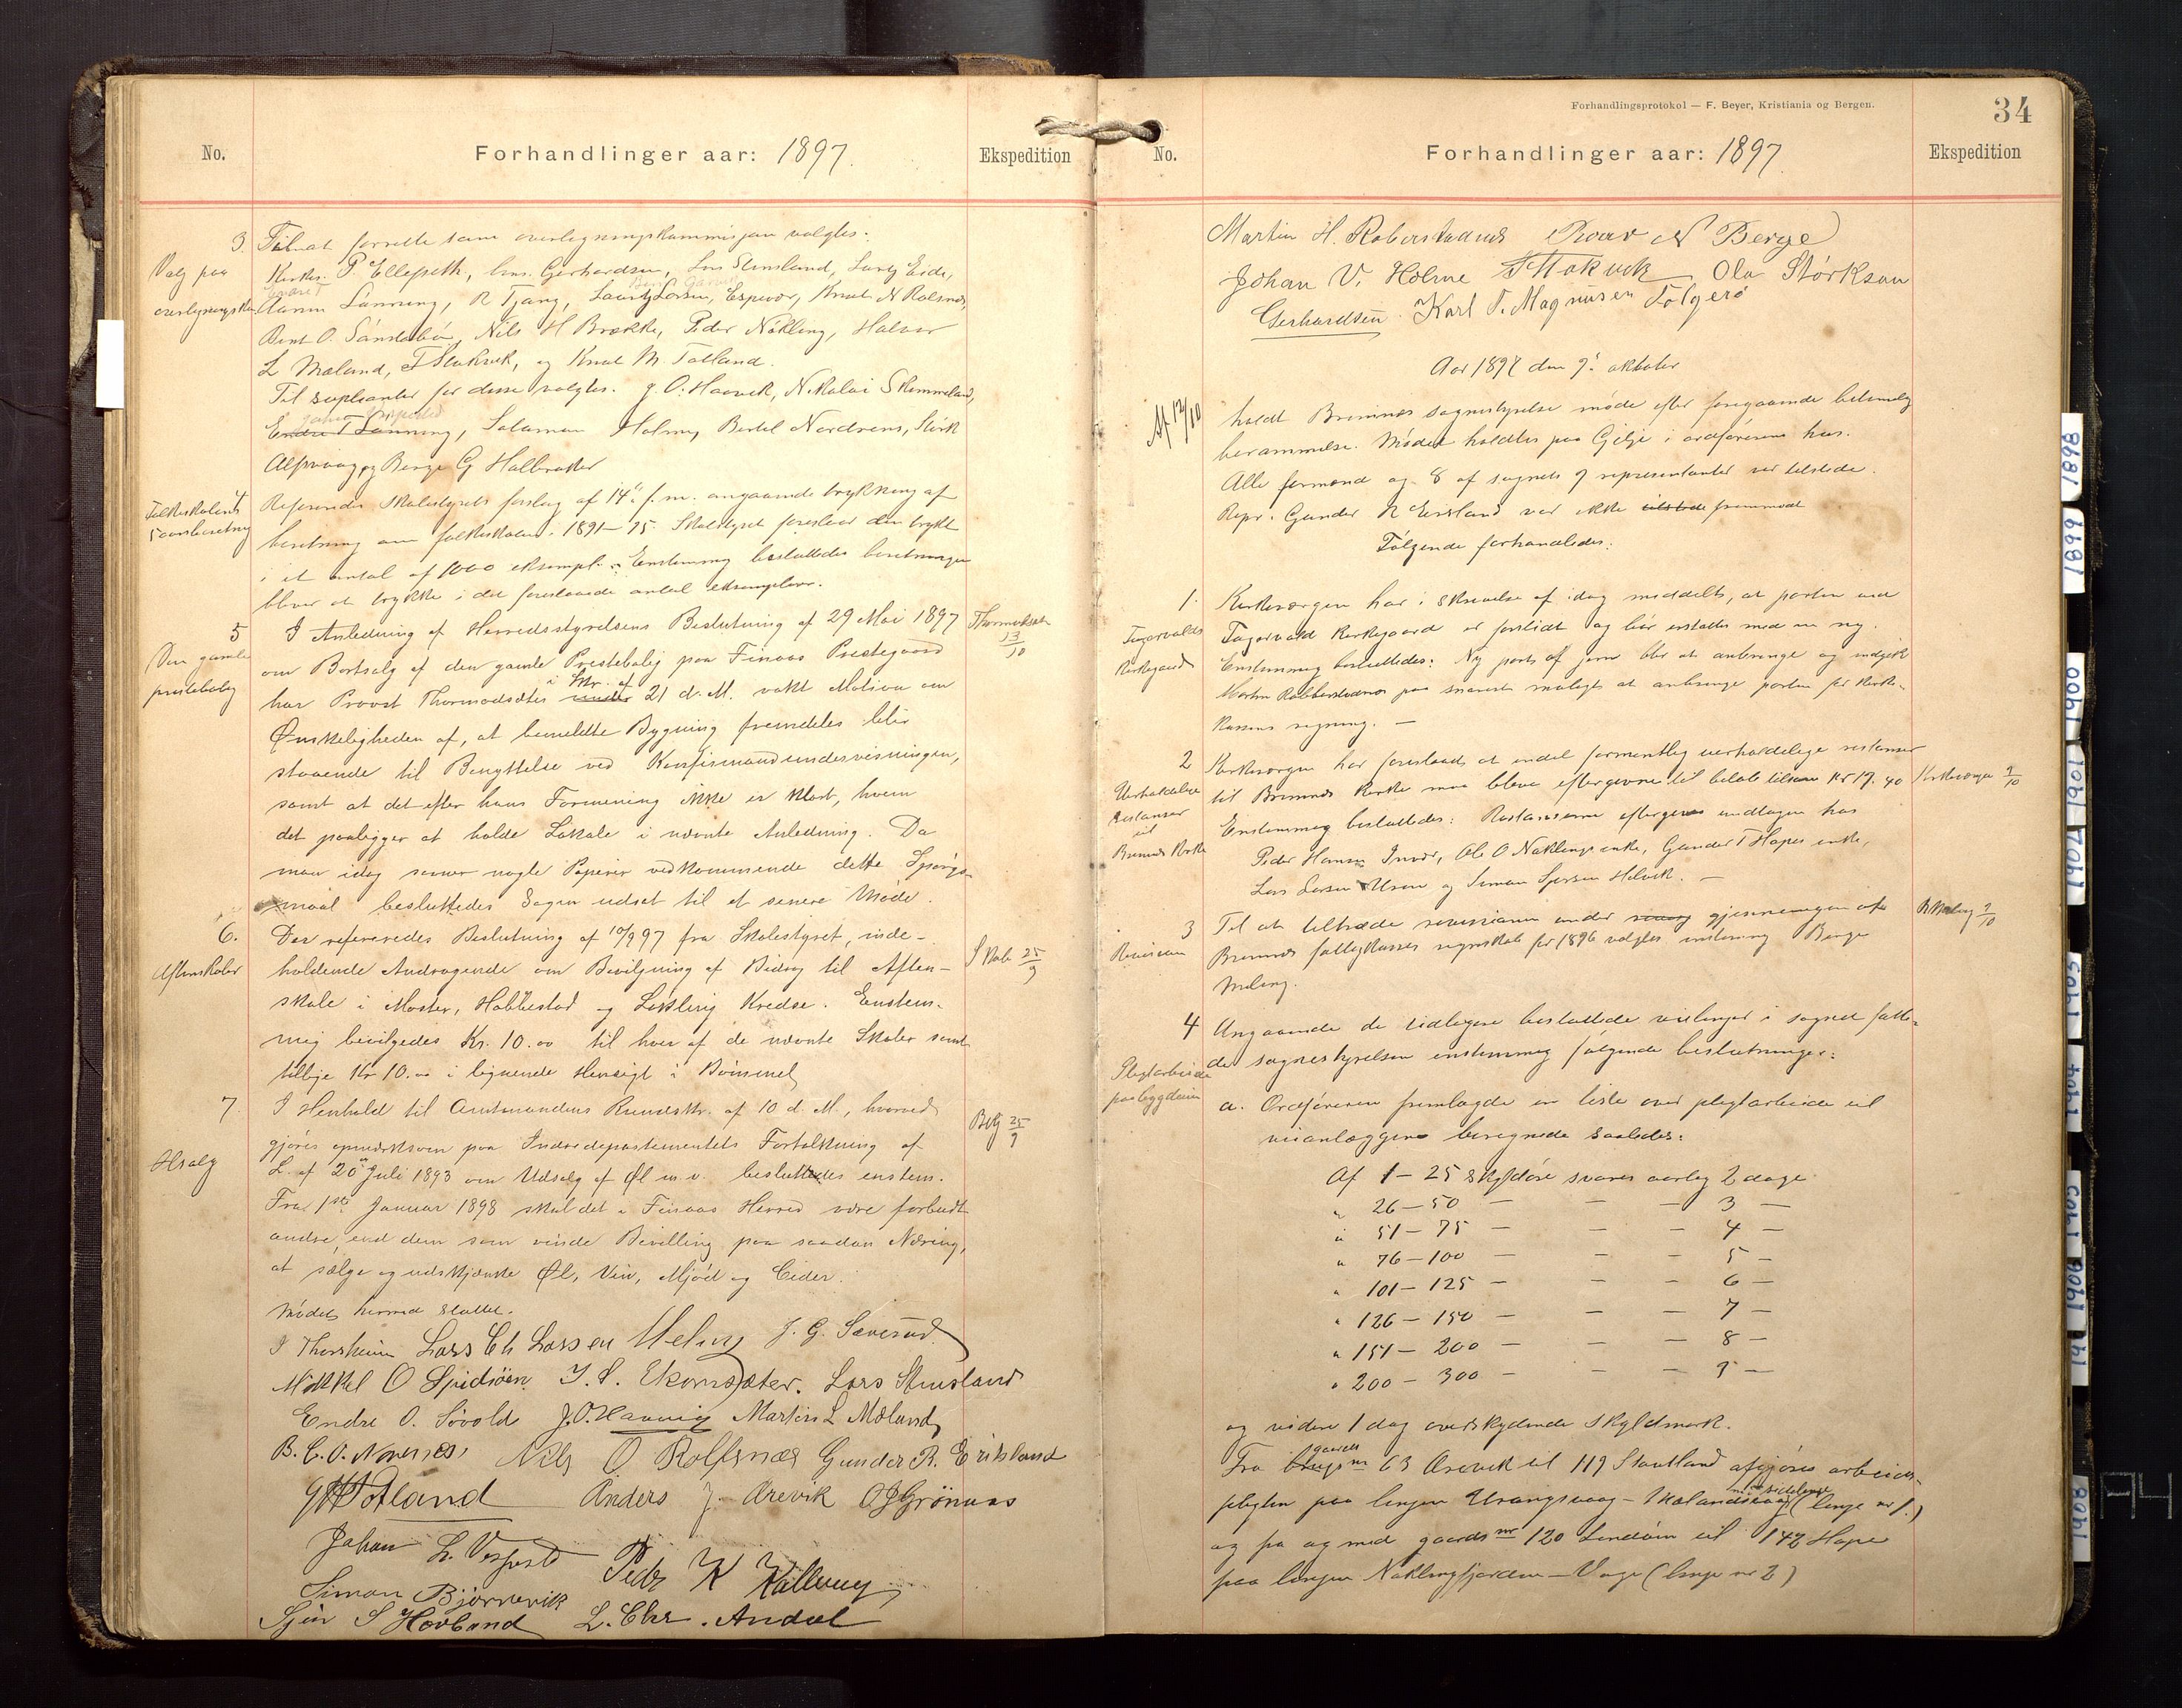 No.
Forhandlinger aar: 1897.
Ekspedition
3.
Valg paa
overligningskom
Til at forrette som overligningskommisjon valgtes:
Kirkes. P. Ellefseth, Gerhardsen, Lars Stensland, Lauritz Eide,
Lønning, R Tjang, Lauritz Larsen, Espevær, Knut N Rolsnes,
Bent O. Sønstabø, Nils H Brække, Peder Nøkling, Halvor
L Mæland, T Stokvik, og Knut M. Totland.
Til suplianter for disse valgtes. J. O. Haavik, Nikolai Skimmeland,
Endre T Lønning, Salamon Holmø, Bertel Nordrens, Størk
Alfsvaag og Berge G Hallaraker
4
Folkeskolens
5 aarsberetng
Refereredes skolestyrets forslag af 14de f. m. angaaende trykning af
beretning om folkeskolen i 1891–95. Skolestyret foreslaar den trykt
i et antal af 1000 eksempl. Enstemmig besluttedes beretningen
bliver at trykke i det foreslaaede antal eksemplarer.
5
Den gamle
prestebolig
I Anledning af Herredsstyrelsens Beslutning af 29 Mai 1897
om Bortsalg af den gamle Prestebolig paa Finaas Prestegaard
i Skr. af
har Provst Thormodsæter under 21 d. M. vakt Motion om
Ønskeligheden af, at bemeldte Bygning fremdeles blir
staaende til Benyttelse ved Konfirmandundervisningen,
samt at det efter hans Formening ikke er klart, hvem
det paaligger at holde Lokale i nævnte Anledning. Da
man idag savner nogle Papirer vedkommende dette Spørgs-
maal besluttedes Sagen udsat til et senere Møde.
Thormodsæter
13/10
6.
Aftenskoler
Der refereredes Beslutning af 10/9 97 fra Skolestyret, inde-
holdende Andragende om Bevilgning af Bidrag til Aften-
skole i Moster, Hobbestad og Løkling Kredse. Enstem-
mig bevilgedes Kr. 10.00 til hver af de nævnte Skoler samt
tillige Kr 10.00 i lignende Hensigt i Bømmel
Skole 25/9
7.
Ølsalg
I Henhold til Amtmandens Rundskr. af 10 d. M., hvorved
gjøres opmærksom paa Indredepartementets Fortolkning af
L. af 20de Juli 1893 om Udsalg af Øl m. v. besluttedes enstem.
Fra 1ste Januar 1898 skal det i Finaas Herred være forbudt
andre, end dem som vinde Bevilling paa saadan Næring,
at sælge og udskjænke Øl, Vin, Mjød og Cider.
Mødet hermed sluttet.
25/9
I Thorsheim Lars Chr Larssen Meling J. G. Sæverud
Mikkel O Spidsøen J. S. Ekornsæter. Lars Stensland
Endre O. Søvold J. O. Haavig Martin L Mæland
B. C. O. Nornes Nils O Rolfsnæs Gunder R. Eriksland
Totland Anders J. Arevik O J Grønaas
Johan L. Vespestad Peder K Kølleng
Simon Bjørnevik
Sjur S Hovland L. Chr. Andal
Forhandlingsprotokol — F. Beyer, Kristiania og Bergen.
34
No.
Forhandlinger aar: 1897
Ekspedition
Martin H. Roberstadnes Roar N Berge
Johan V. Holme T Stokvik Ola Størkson
Gerhardsen. Karl T. Magnusen Folgerø
Aar 1897 den 9de oktober
Af 12/10
holdt Bremnes sognestyrelse møde efter foregaaende betimelig
berammelse. Mødet holdtes paa Gilje i ordførerens hus.
Alle formænd og 8 af sognets 9 representanter var tilstede.
Repr. Gunder R Eriksland var ikke tilstede fremmødt
Følgende forhandledes:
1.
Kirkegaard
Kirkeværgen har i skrivelse af idag meddelt, at porten ved
Fagervald Kirkegaard er forslidt og bør erstattes med en ny.
Enstemmig besluttedes: Ny port af jern blir at anbringe og indgik
Martin Robberstadnes paa snarest muligt at anbringe porten for kirke-
kassens regning. —
2
Uerholdelige
restanser
til
Bremnes Kirke
Kirkeværgen har foreslaaet at endel formentlig uerholdelige restanser
til Bremnes Kirke maa bleve eftergivne til beløb tilsam Kr 19.40
Enstemmig besluttedes: Restanserne eftergives undtagen hos
Peder Hansen Innvær, Ole O Nøklings enke, Gunder T Hopes enke,
Lars Larsen Uren og Simon Sjursen Helvik. —
Kirkeværgen 9/10
3
Revision
Til at tiltræde revisionen under gjennemgaaen af
Bremnes fattigkasses regnskab for 1896 valgtes enstemmig Børge
Meling.
B Meling 9/10
4
Pligtarbeide
paa bygdeveien
Angaaende de tidligere besluttede veilinjer i sognet fatte-
de sognestyrelsen enstemmig følgende beslutninger:
a. Ordføreren fremlagde en liste over pligtarbeide ved
veianlæggene beregnede saaledes:
Af 1 – 25 skyldøre svares aarlig 2 dage
" 26 – 50 — — — 3 —
" 51 – 75 — — — 4 —
" 76 – 100 — — — 5 —
" 101 – 125 — — — 6 —
" 126 – 150 — — — 7 —
" 151 – 200 — — — 8 —
" 200 – 300 — — — 9 —
og videre 1 dag overskydende skyldmark.
gaards
Fra brugs nr 63 Arevik til 119 Stautland afgjøres arbeids-
pligten paa linjen Urangsvaag – Mælandsvaag (linje nr 1.)
og fra og med gaards nr 120 Lindøen til 142 Hope
paa linjen Nøklingfjorden – Vage (linje nr 2)
1898
1899
1900
1901
1902
1903
1904
1905
1906
1908